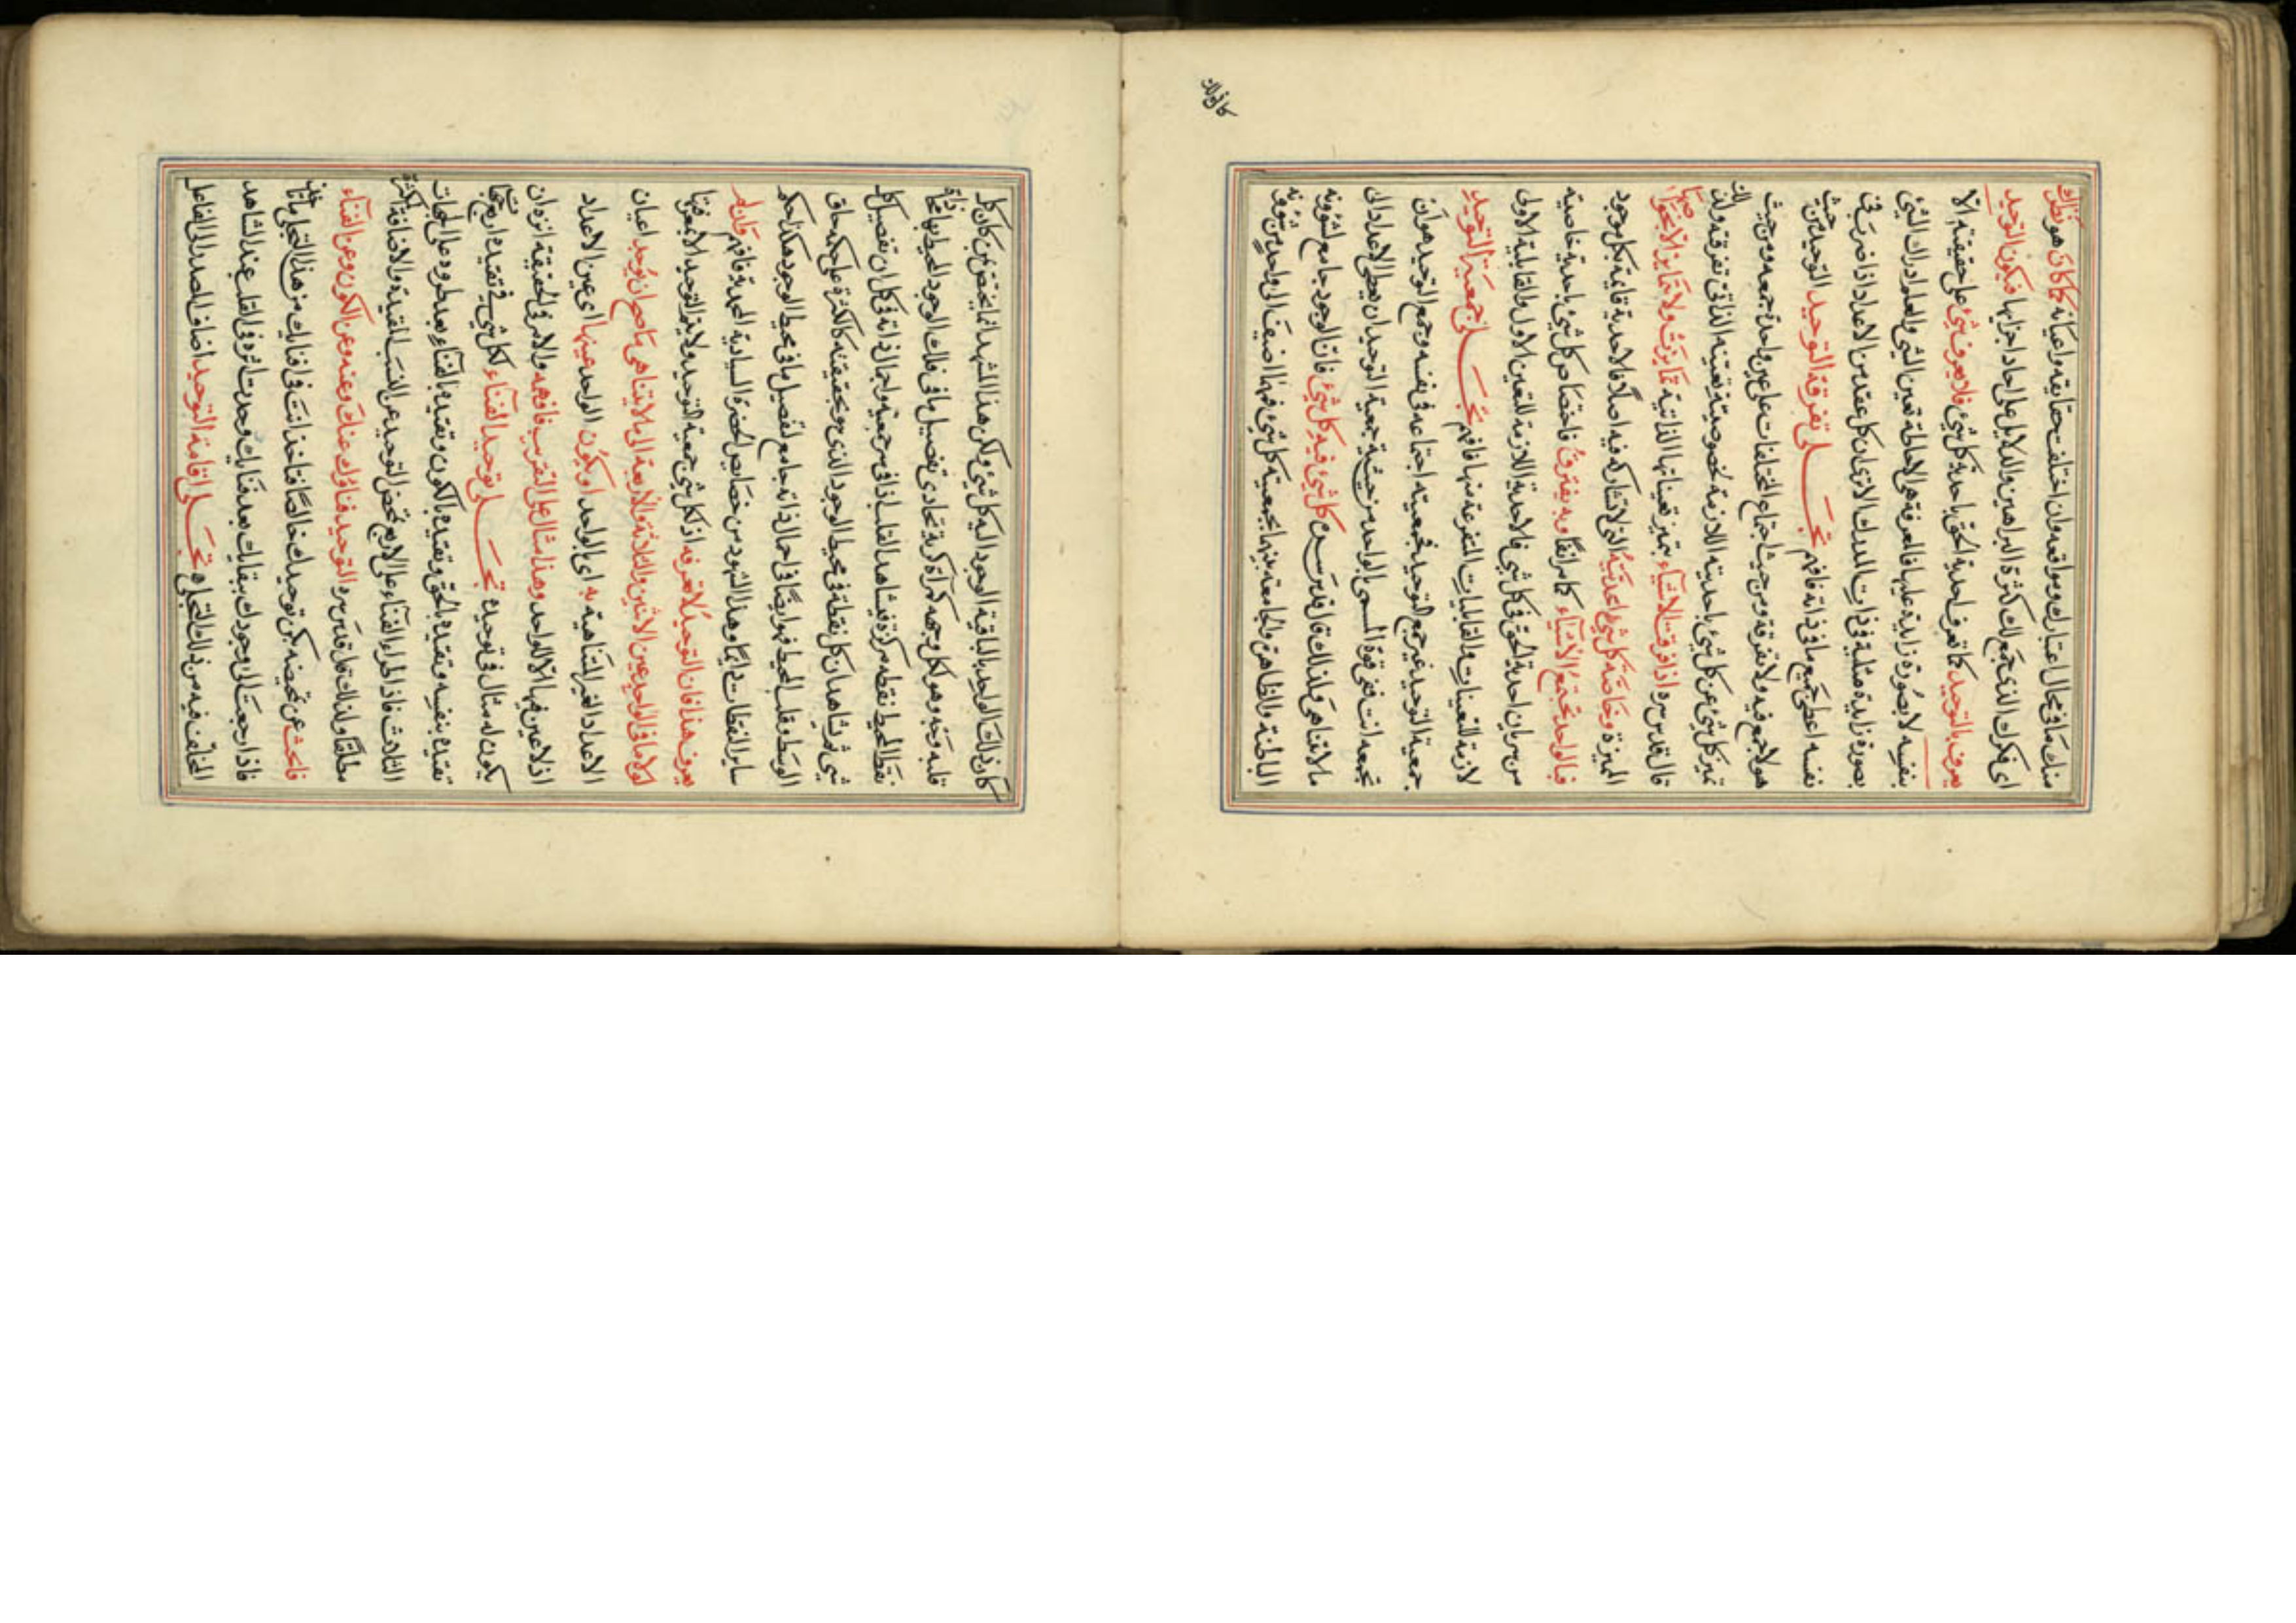 منك ما في محال اعتبارك ومواقعه وان اختلفت حقايقه واعيانه فكان هو ادراك
اى فكرك الذى جمع لك كثرة البراهين والدلايل على احاد اجزائها فيكون التوحيد
يعرف بالتوحيد كما تعرف احدية الحق باحدية كل شئ فلا يعرف شئ على حقيقته الا
بنفسه لا بصورة زايدة عليها فالمعرفة هى الاحاطة بعين الشئ والعلم ادراك الشئ
بصورة زايدة مثلية فى ذات المدرك الا ترى ان كل عقد من الاعداد اذا ضرب فى
نفسه اعطى جميع ما فى ذاته فافهم تجلى تفرقة التوحيد التوحيد من حيث
هو لا جمع فيه ولا تفرقة ومن حيث اجتماع المختلفات على عين واحدة جمعه ومن حيث
تميز كل شئ عن كل شئ باحديته اللازمة لخصوصية تعينه الذاتى تفرقته ولذلك
قال قدس سره اذا فرقت الاشياء بتميز تعيناتها الذاتية تمايزت ولا تتمايز الا بخواصها
المميزة وخاصة كل شئ احديته التى لا تشاركه فيه اصلا فالاحدية قايمة بكل موجود
فبالواحد تجتمع الاشياء كما مر انفا وبه يفترق فاختصاص كل شئ باحدية خاصية
من سريان احدية الحق فى كل شئ فالاحدية اللازمة للتعين الاول والقابلية الاولى
لازمة للتعينات والقابليات المتفرعة منها فافهم تجلى جمعية التوحيد
جمعية التوحيد غير جمع التوحيد فجمعيته اجتماعه فى نفسه وجمع التوحيد هو ان
تجمعه انت ففى قوة المسمى بالواحد من حيثية جمعية التوحيد ان يعطى الاعداد الى
ما لا يتناهى ولذلك قال قدس سره كل شئ فيه كل شئ فان الوجود جامع لشؤونه
الباطنة والظاهرة والجامعة بينهما بجمعية كل شئ فمهما اضيف الى واحد من شؤونه
كان ذلك
كان ذلك الواحد بالباقية الوجود اليه كل شئ ولكن هذا المشهد انما يختص بمن كان كل
قلبه وجه وهو لكل وجهه كمرآة كرية تحاذى تفصيل ما فى فلك الوجود المحيط بها محاذاة
نقط المحيط نقطه مركزه فيشاهد القلب اذا فى سر جمعيته واجمال ذاته فى كل ان تفصيل كل
شئ ثم يشاهد ان كل نقطة فى محيط الوجود الذى هو بحقيقته كالكثرة على حكم حاق
الوسط وقلب المحيط فهو ايضا فى اجمال ذاته جامع لتفصيل ما فى محيط الوجود هكذا حكم
ساير النقاط دايما وهذا الشهود من خصايص الحضرة السيادية المحمدية فافهم فان لم
يعرف هذا فان التوحيد لا تعرفه اذ لكل شئ جمعية التوحيد ولا يتم التوحيد الا بمعرفتها
لولا ما فى الواحد عين الاثنين والثلاثة والاربعة الى ما لا يتناهى ما صح ان توجد اعيان
الاعداد الغير المتناهية به اى بالواحد او يكون الواحد عينها اى عين الاعداد
اذ لا عين فيها الا للواحد وهذا مثال على التقريب فافهمه والامر فى الحقيقة انزه ان
يكون له مثال فى توحيده تجلى توحيد الفناء لكل شئ فى تقيده اربع جهات
تقيده بنفسه وتقيده بالحق وتقيده بالكون وتقيده بالفناء بعد طروه على الجهات
الثلث فاذا طراء الفناء على الاربع تمحض التوحيد عن النسب المقيدة والاضافة المكثرة
مطلقا ولذلك قال قدس سره التوحيد فناؤك عنك وعنه وعن الكون وعن الفناء
فابحث عن تمحيضه يكن توحيدك خالصا فتاخذ انت فى فنايك من هذا التجلى ما تاخذ
فاذا رجعت الى وجودك ببقايك بعد فنايك وجدت اثره فى القلب عند الشاهد
المخلف فيه من ذلك التجلى تجلى اقامة التوحيد اضاف المصدر الى الفاعل